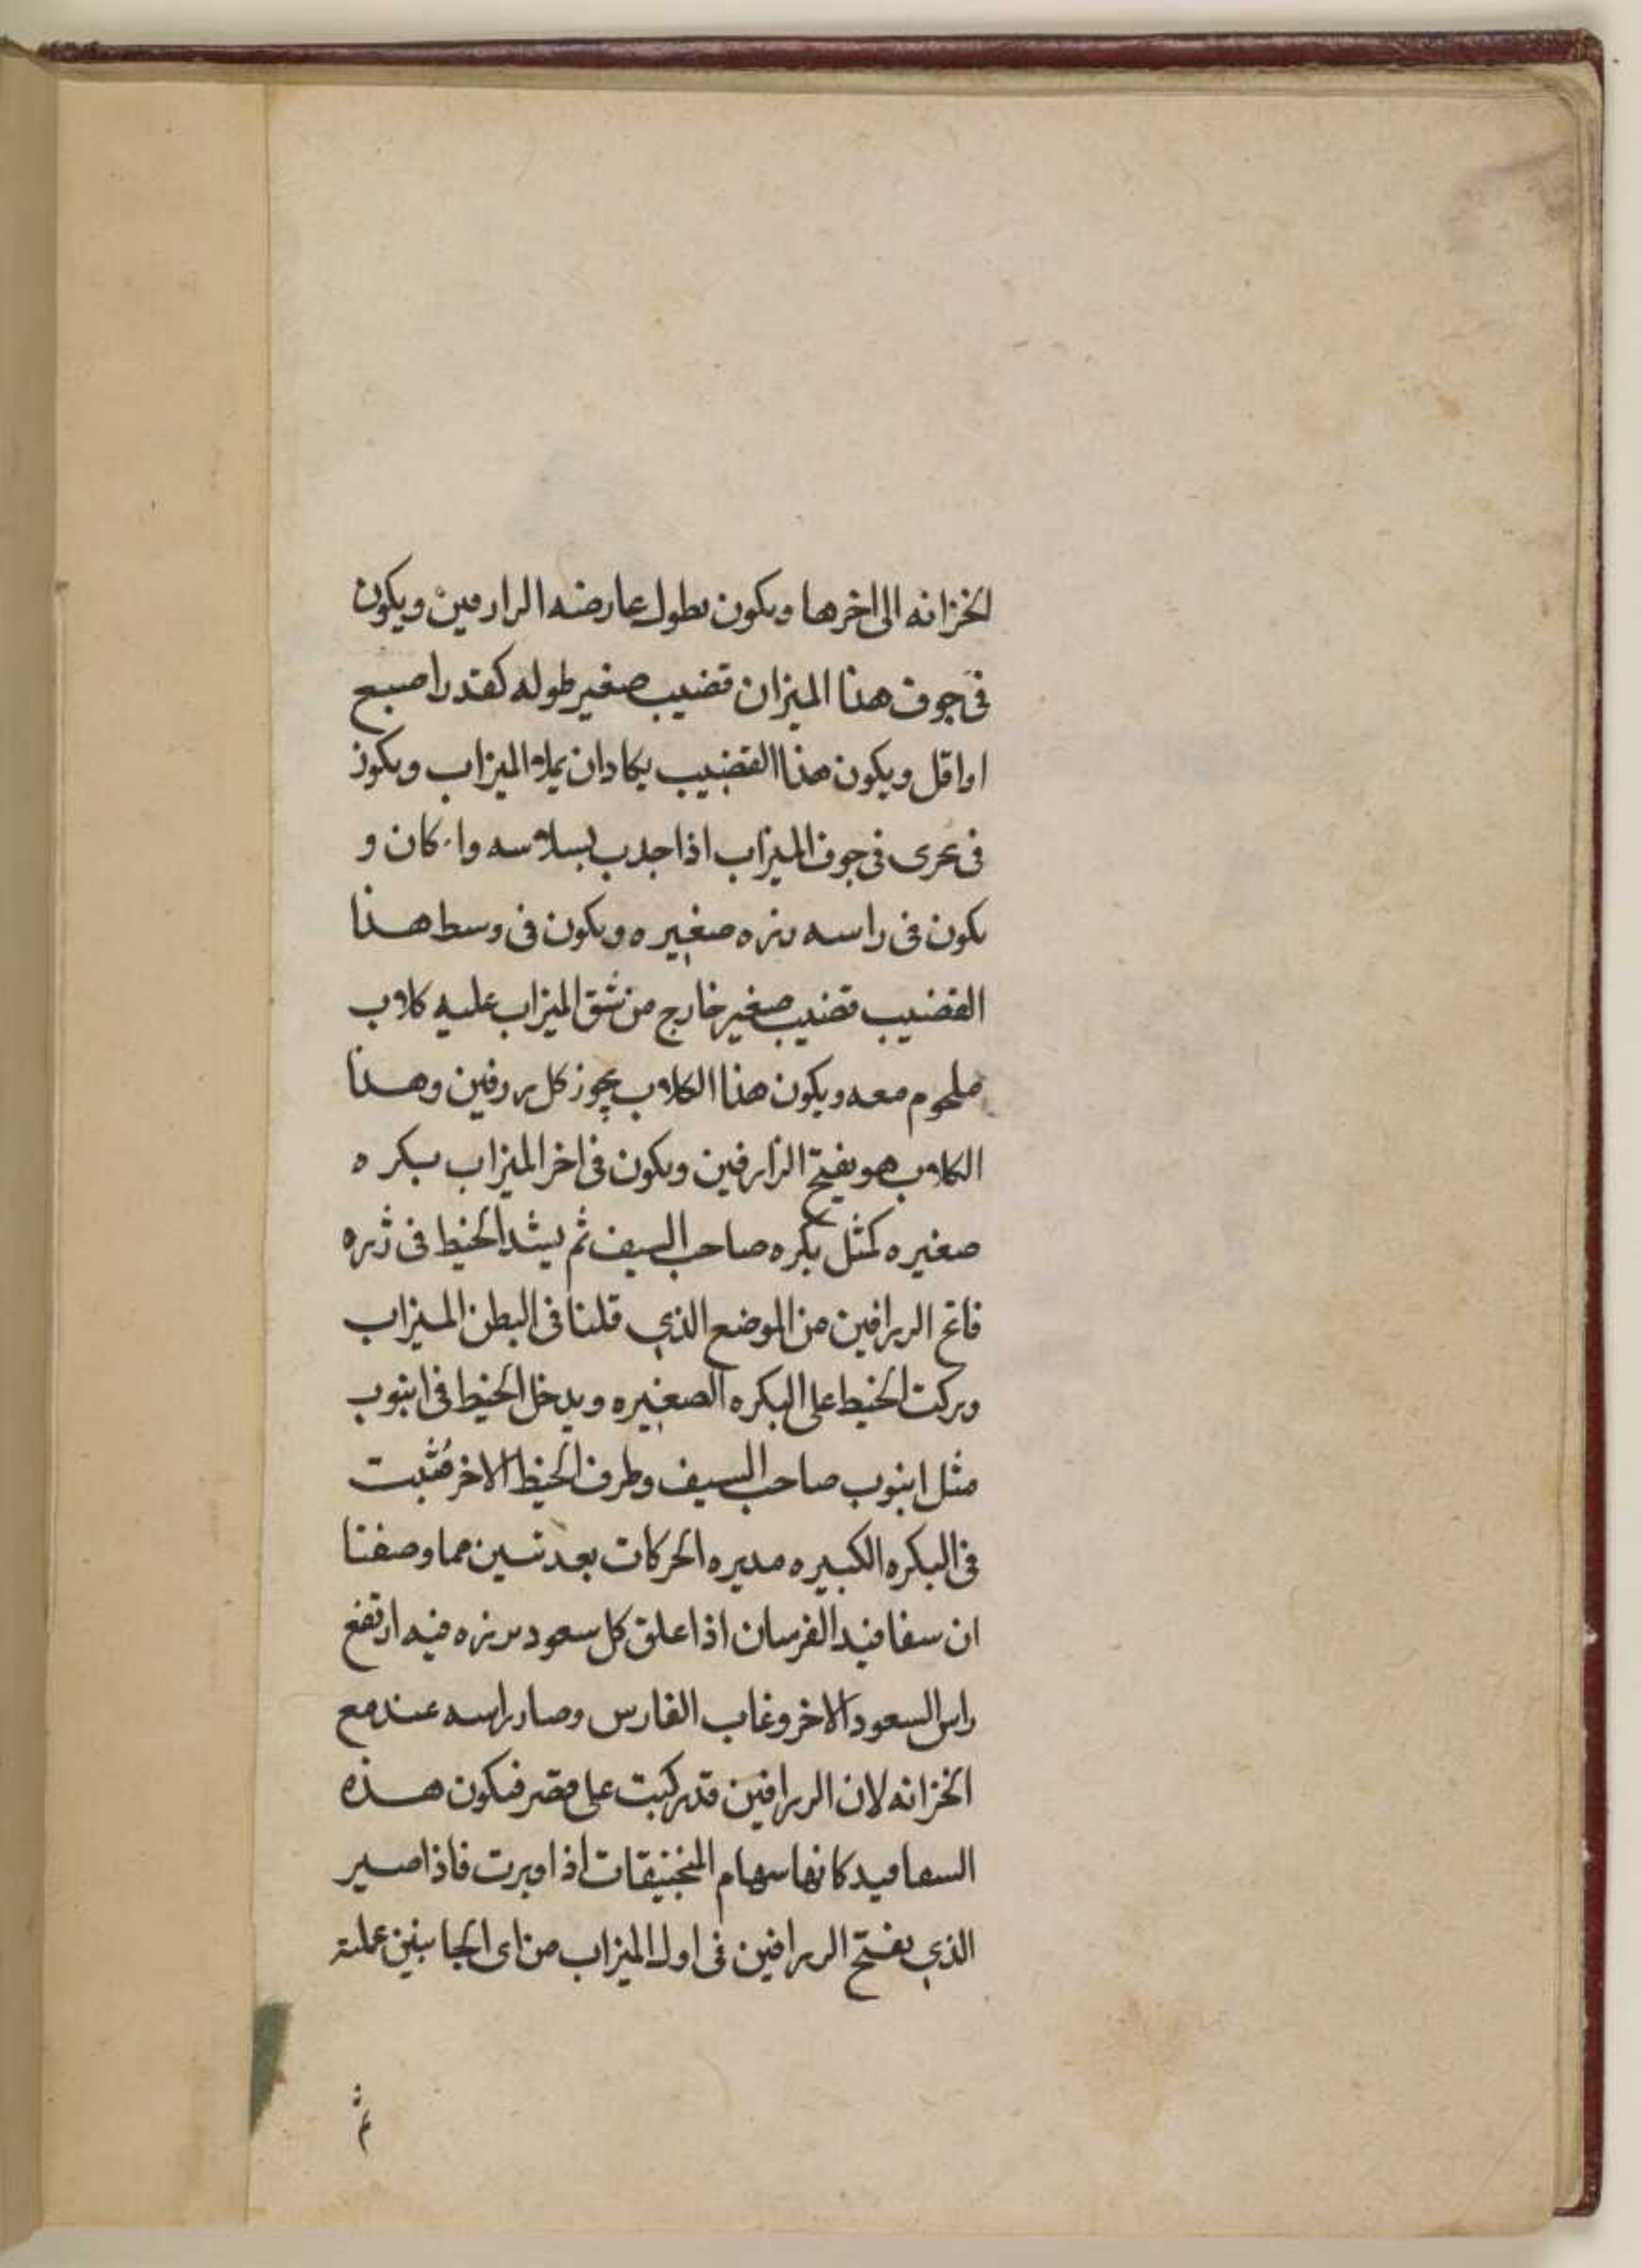 الخزانه الى اخرها ويكون بطول عارضه الرارفين ويكون
فى جوف هذا الميزان قضيب صغير طوله كقدر اصبع
او اقل ويكون هذا القضيب يكاد ان يملا الميزاب ويكون
فى بحرى فى جوف الميزاب اذا جذب بسلاسه وا كان و
يكون فى راسه رزه صغيره ويكون فى وسط هذا
القضيب قضيب صغير خارج من شق الميزاب عليه كلاب
ملحوم معه ويكون هذا الكلاب يجوز كل روفين وهذا
الكلاب هو يفتح الزارفين ويكون فى اخر الميزاب بكره
صغيره كمثل بكره صاحب السيف ثم يشد الخيط فى زره
فاتح الررافين من الموضع الذي قلنا فى البطن الميزاب
وبركت الخيط على البكره الصغيره ويدخل الخيط فى انبوب
مثل انبوب صاحب السيف وطرف الخيط الاخر مثبت
فى البكره الكبيره مديره الحركات بعد تسين مما وصفنا
ان سفافيد الفرسان اذا علق كل سعود برزه فيه ارتفع
راس السعود الاخر وغاب الفارس وصار راسه عند مع
الخزانه لان الررافين قد ركبت على مقصر فيكون هذه
السفافيد كانها سهام المنجنيقات اذا اوبرت فاذا صير
الذي يفتح الررافين فى اول الميزاب من اى الجانبين عملته
ثم